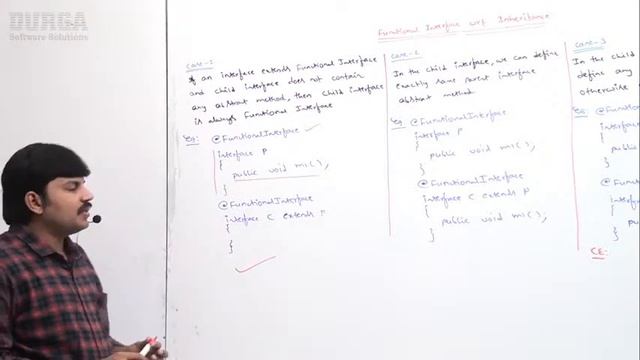 DURGA
Software Solutions
Functional Interface wrt Inheritance
case-1
If an interface extends Functional Interface
and child interface does not contain
any abstract method, then child interface
is always Functional Interface
Eg: @FunctionalInterface
interface P
{
public void m1();
}
@FunctionalInterface
interface C extends P
{
}
case-2
In the child interface, we can define
exactly same parent interface
abstract method
Eg: @FunctionalInterface
interface P
{
public void m1();
}
@FunctionalInterface
interface C extends P
{
public void m1();
}
case-3
In the child
define any
otherwise
Eg:
interface
{
}
interface
{
}
CE: